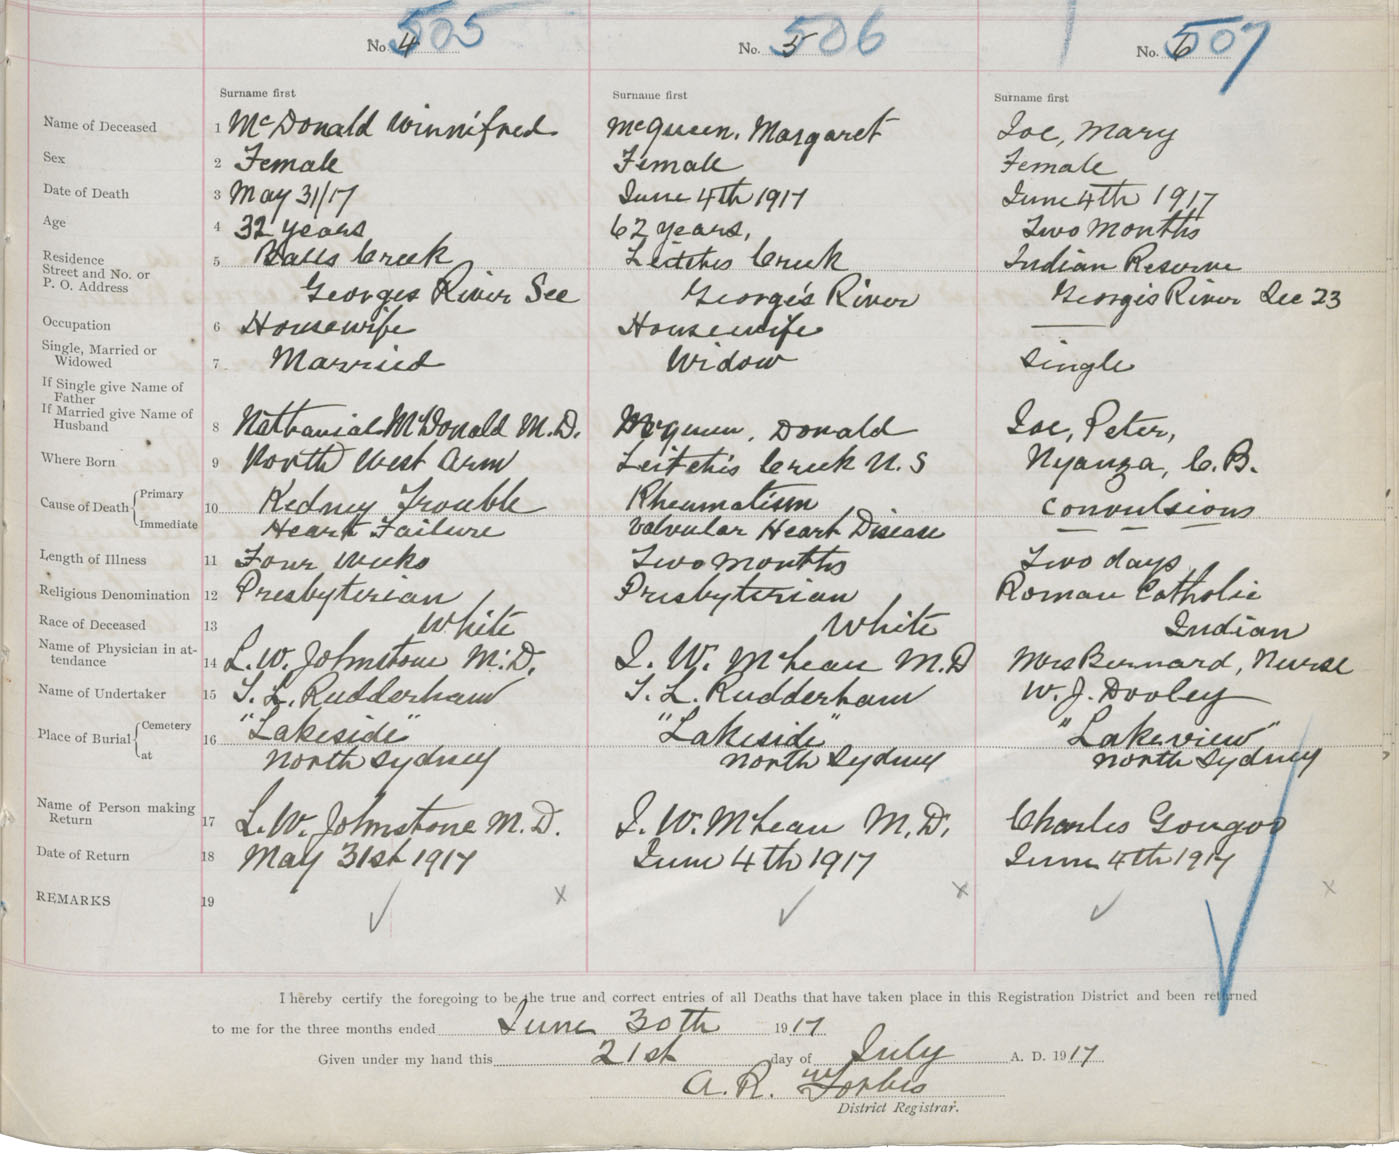 No. 4 505 No. 5 506 No. 6 507
Surname first Surname first Surname first
Name of Deceased 1 McDonald Winnifred McQueen, Margaret Joe, Mary
Sex 2 Female Female Female
Date of Death 3 May 31/17 June 4th 1917 June 4th 1917
Age 4 32 years 62 years, Two Months
Residence Balls Creek Leitches Creek Indian Reserve
Street and No. or 5
P. O. Address Georges River Sec George's River Georgis River Sec 23
Occupation 6 Housewife Housewife ———
Single, Married or
Widowed 7 Married Widow Single
If Single give Name of
Father
If Married give Name of
Husband 8 Nathanial McDonald M.D. McQueen, Donald Joe, Peter,
Where Born 9 North West Arm Leitche's Creek N. S Nyanza, C. B.
Cause of Death { Primary 10 Kedney Trouble Rheumatism Convulsions
Immediate Heart Failure Valvular Heart Disease — — —
Length of Illness 11 Four Weeks Two Months Two days
Religious Denomination 12 Presbyterian Presbyterian Roman Catholic
Race of Deceased 13 White White Indian
Name of Physician in at-
tendance 14 L. W. Johnstone M.D. J. W. McLean M. D Mrs Bernard, Nurse
Name of Undertaker 15 T. L. Rudderham T. L. Rudderham W. J. Dooley
Place of Burial { Cemetery 16 "Lakeside" "Lakeside" "Lakeview"
at North Sydney North Sydney North Sydney
Name of Person making
Return 17 L. W. Johnstone M. D. J. W. McLean M. D. Charles Gougoo
Date of Return 18 May 31st 1917 June 4th 1917 June 4th 1917
REMARKS 19
I hereby certify the foregoing to be the true and correct entries of all Deaths that have taken place in this Registration District and been returned
to me for the three months ended June 30th 1917
Given under my hand this 21st day of July A. D. 1917
A. R. Forbes
District Registrar.